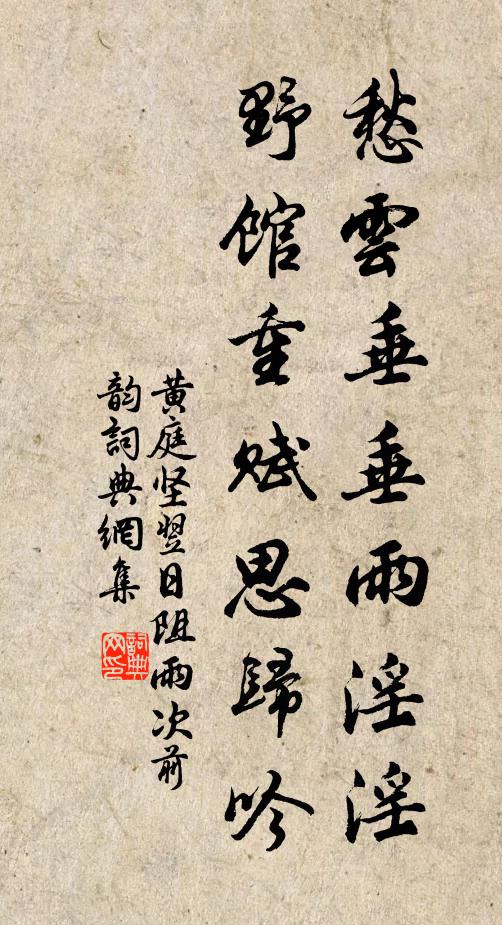 愁雲垂垂雨淫淫
野館重賦思歸吟
黄庭坚翌日阻雨次前
韵詞典網集
詞典
网印